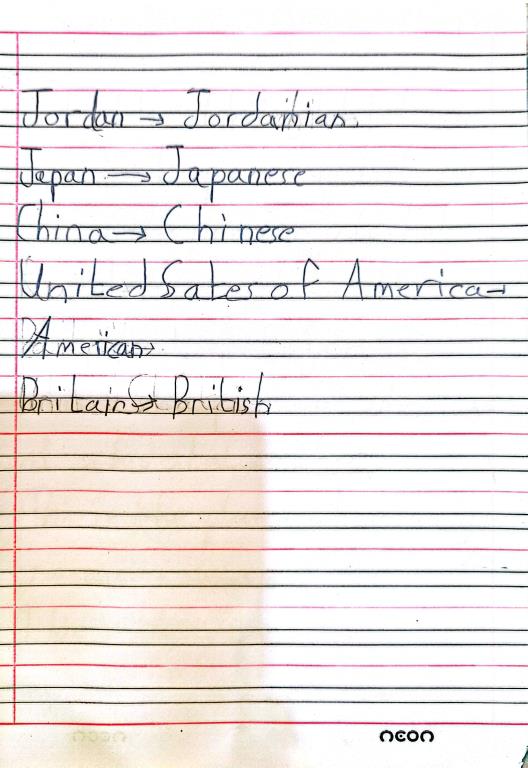 Jordan → Jordanian.
Japan → Japanese
China → Chinese
United Sates of America →
American
Britain → British
neon